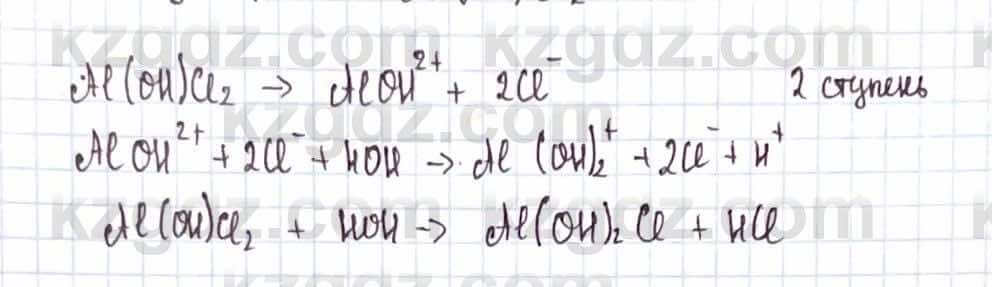 Al(OH)Cl₂ → AlOH²⁺ + 2Cl⁻ 2 ступень
AlOH²⁺ + 2Cl⁻ + HOH → Al(OH)₂⁺ + 2Cl⁻ + H⁺
Al(OH)Cl₂ + HOH → Al(OH)₂Cl + HCl
kzgdz.com kzgdz.com
kzgdz.com
kzgdz.com kzgdz.com